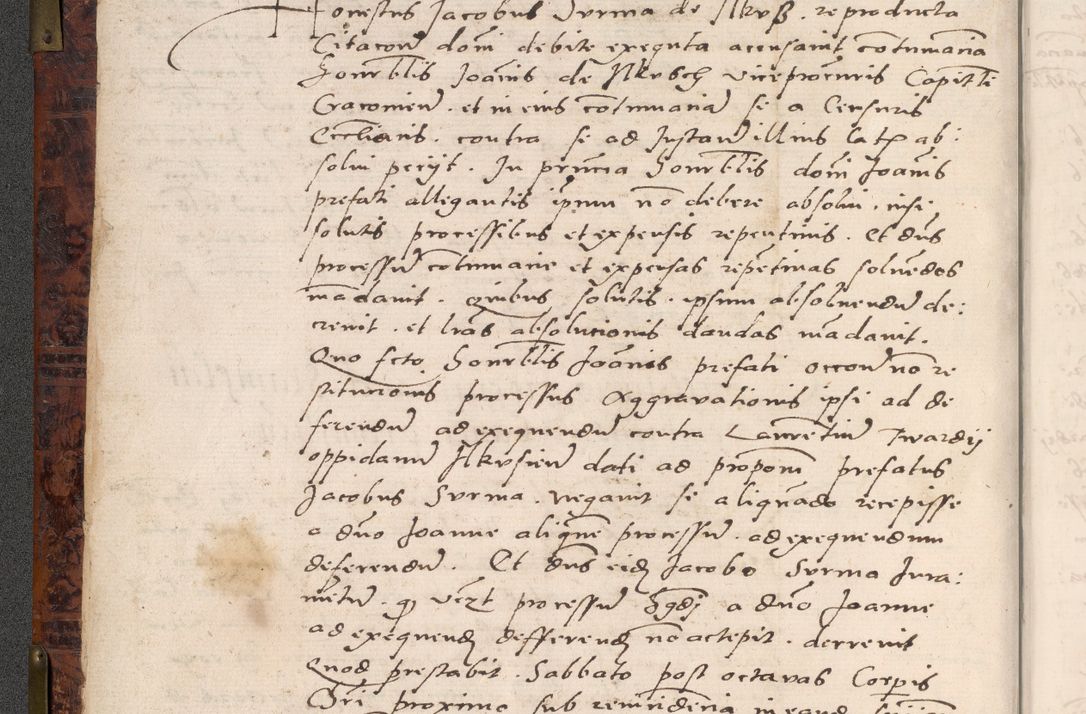 Honestus Jacobus Surma de Ilkuß . reproducta
Citacon̄ domi debite exequta accusavit cōtumacia
Honorablis Joānis de Ilkusch viceprocuris Capitli
Cracovien̄ . et in eius cōtumacia se a Censuris
Eccliasticis . contra se ad Instan̄ illius lat ab:
solvi peciit . In prn̄cia Honorblis domi Joānis
prefati allegantis ipsum nō debere absolvi . nisi
solutis processibus et expensis repentinis . Et dn̄s
processū cōtumacie et expensas repētinas solvēdas
mādavit . Quibus solutis . ipsum absolvendū de:
crevit . et lr̄as absolutionis dandas mādavit .
Quo fcto Honorblis Joānis prefati occon̄ nō re
stitucionis processus Aggravationis ipsi ad de
ferendū ad exequendū contra Laurentiū Twardij
oppidanū Ilkusien̄ dati ad propom̄ prefatus
Jacobus Surma . negavit se aliquādo recepisse
a dn̄o Joanne aliquē processū . ad exequendum
deferendū . Et dn̄s eidē Jacobo Surma Jura:
mētū . qz processū a dn̄o Joanne
ad exequendū defferendū nō actepit . decrevit
Quod prestabit . Sabbato post octavas Corpis
Xpi proximo sub in eand